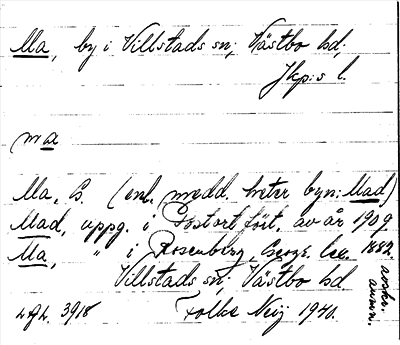 Ma, by i Villstads sn; Västbo hd;
Jkp:s l.
ma
Ma, B. (enl. medd. heter byn: Mad)
Mad, uppg. i Postort.fört. av år 1909
Ma, " i Rosenberg, Geogr. lex. 1882.
Villstads sn; Västbo hd
Folke Neij 1940.